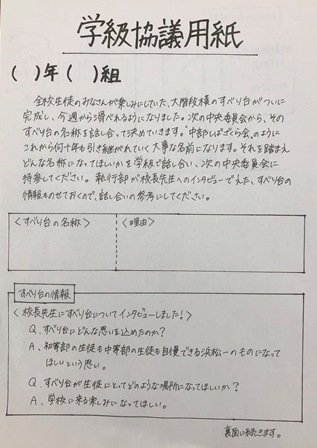 学級協議用紙
( )年( )組
全校生徒のみなさんが楽しみにしていた、大階段横のすべり台がついに
完成し、今週から滑べれるようになりました。次の中央委員会から、その
すべり台の名称を話し合って決めていきます。"中部しばざくら会"のように
これから何十年も引き継がれていく大事な名前になります。それを踏まえ
どんな名称になってほしいかを学級で話し合い、次の中央委員会に
持参してください。執行部が校長先生へのインタビューでえた、すべり台の
情報ものせておくので、話し合いの参考にしてください。
<すべり台の名称> <理由>
すべり台の情報
<校長先生にすべり台についてインタビューしました!>
Q、すべり台にどんな思いを込めたのか?
A、初等部の生徒も中等部の生徒も自慢できる浜松一のものになって
ほしいという思い。
Q、すべり台が生徒にとってどのような場所になってほしいか?
A、学校に来る楽しみになってほしい。
裏面に続きます。